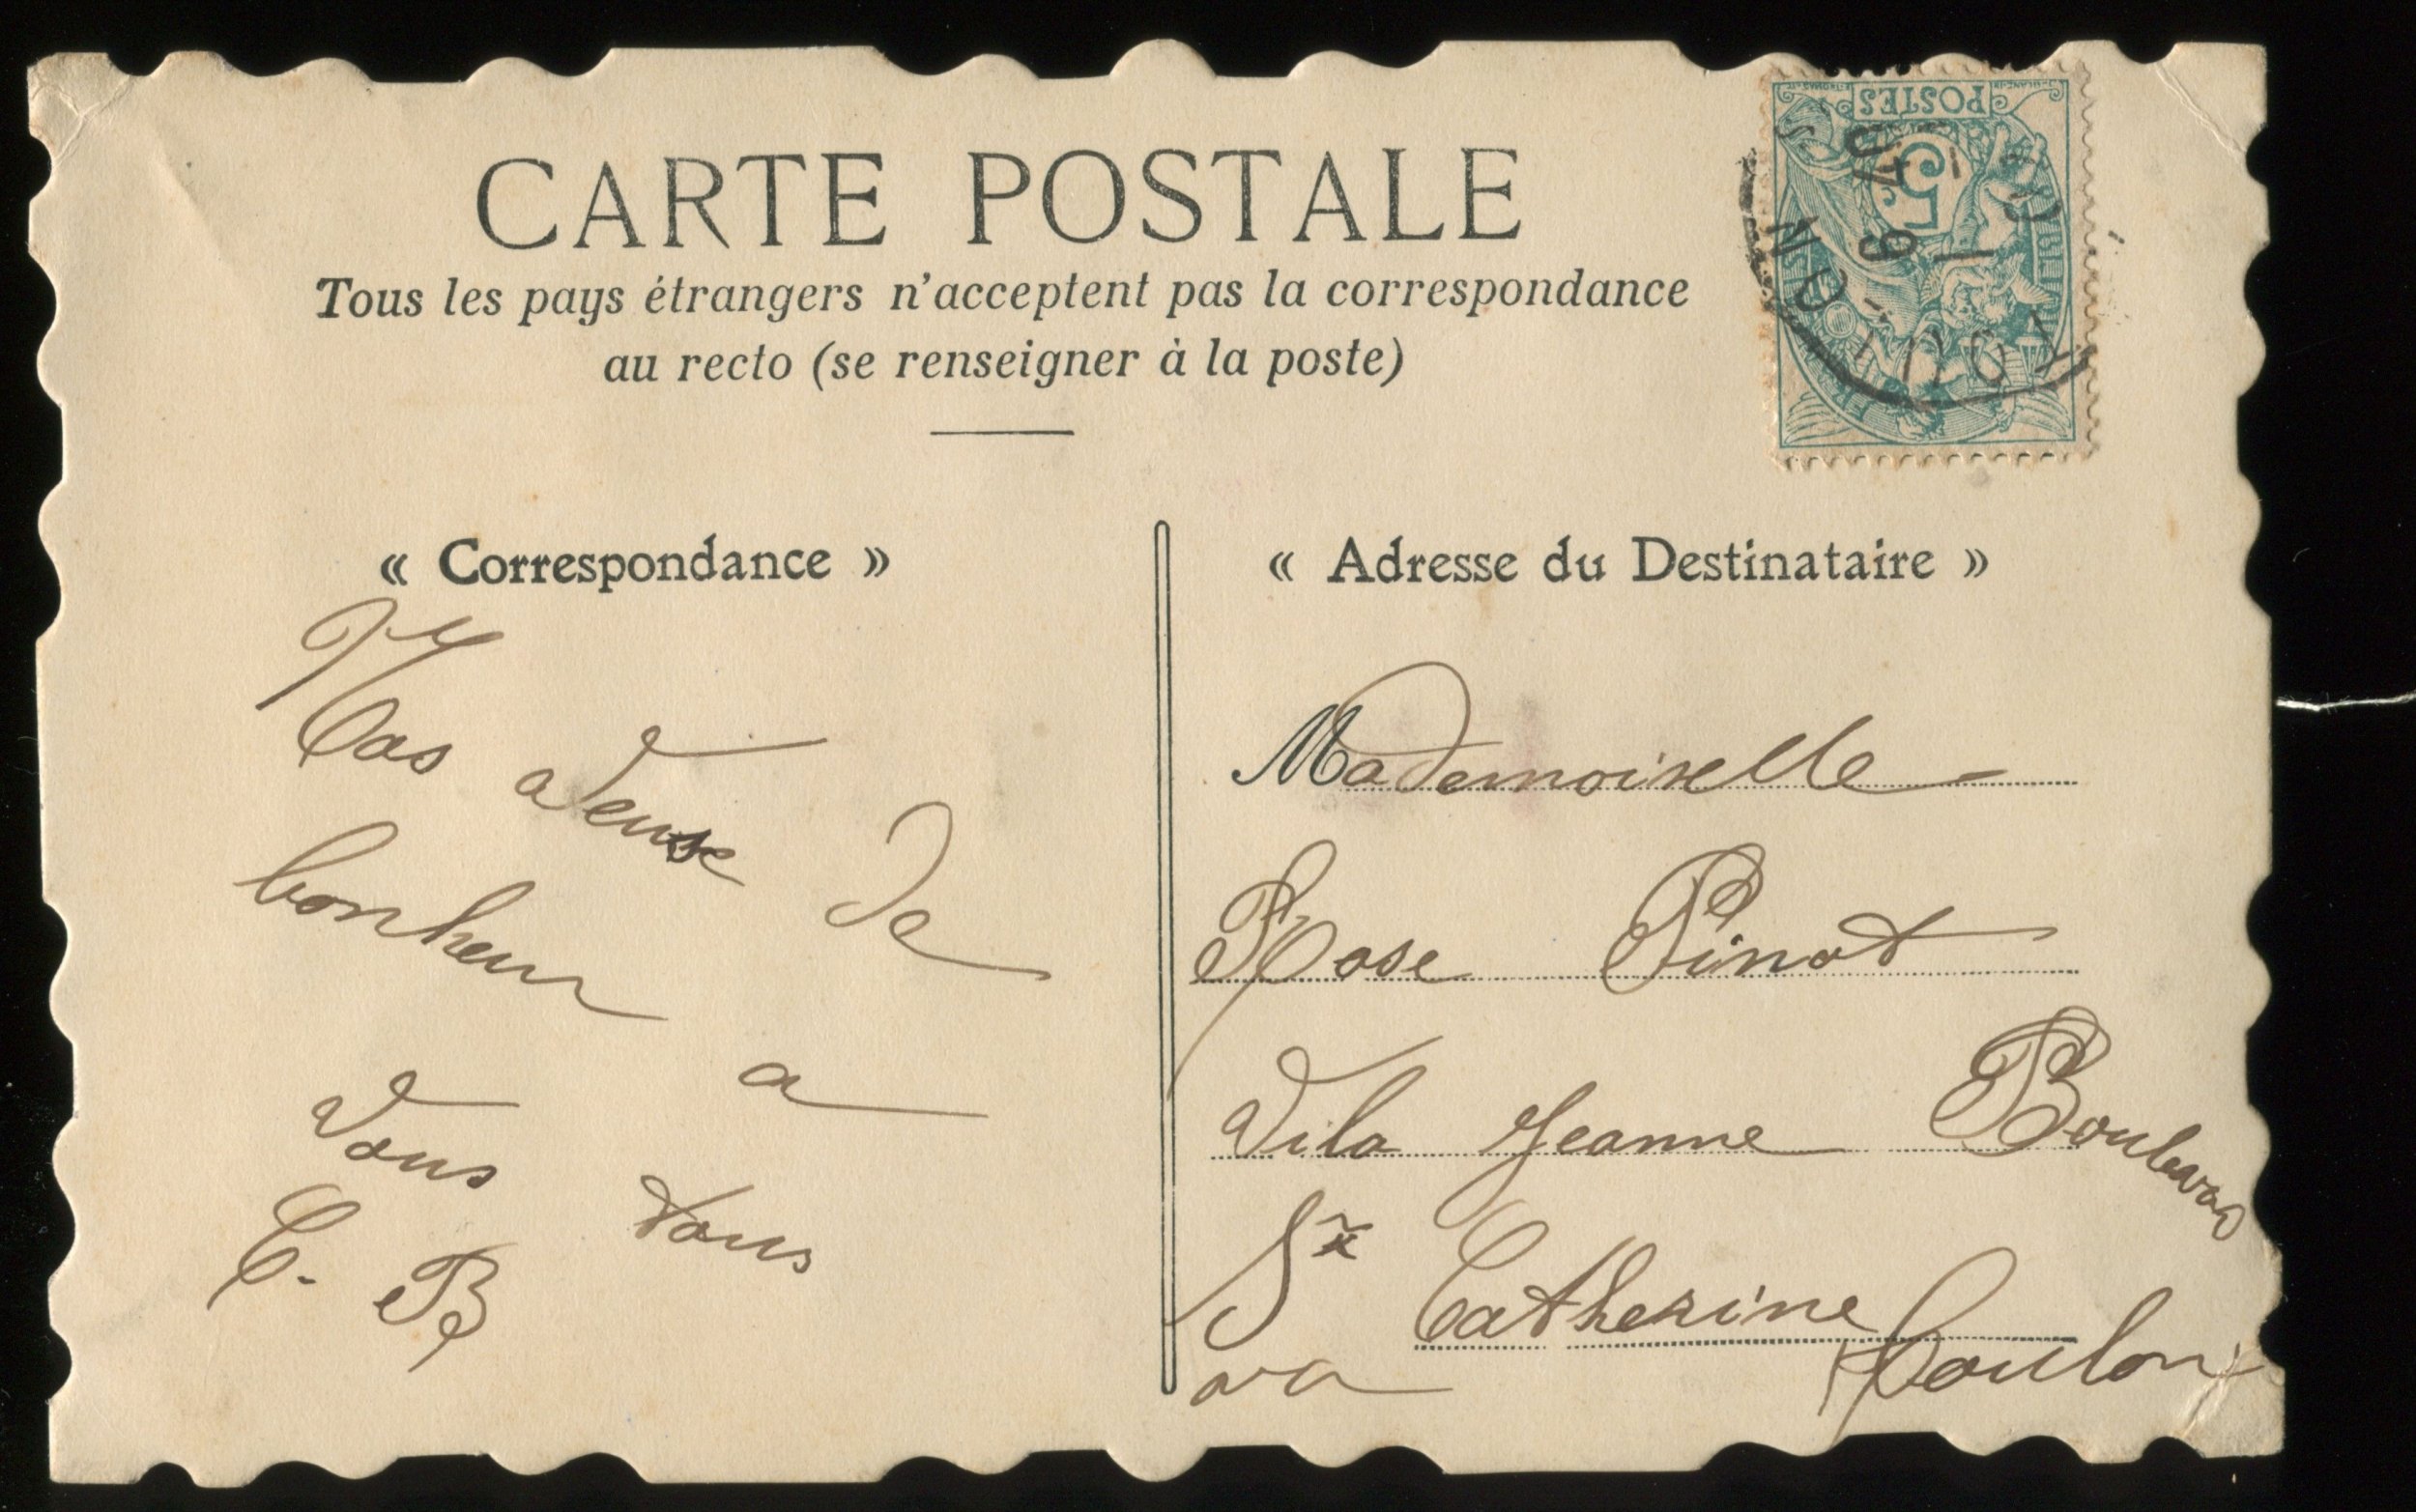 CARTE POSTALE
Tous les pays étrangers n'acceptent pas la correspondance
au recto (se renseigner à la poste)
POSTES
5
« Correspondance »
veuse de
bonheur a
vous tous
C. B
« Adresse du Destinataire »
Mademoiselle
Rose Pinot
Vila Jeanne Boulevar
Catherine
Toulon